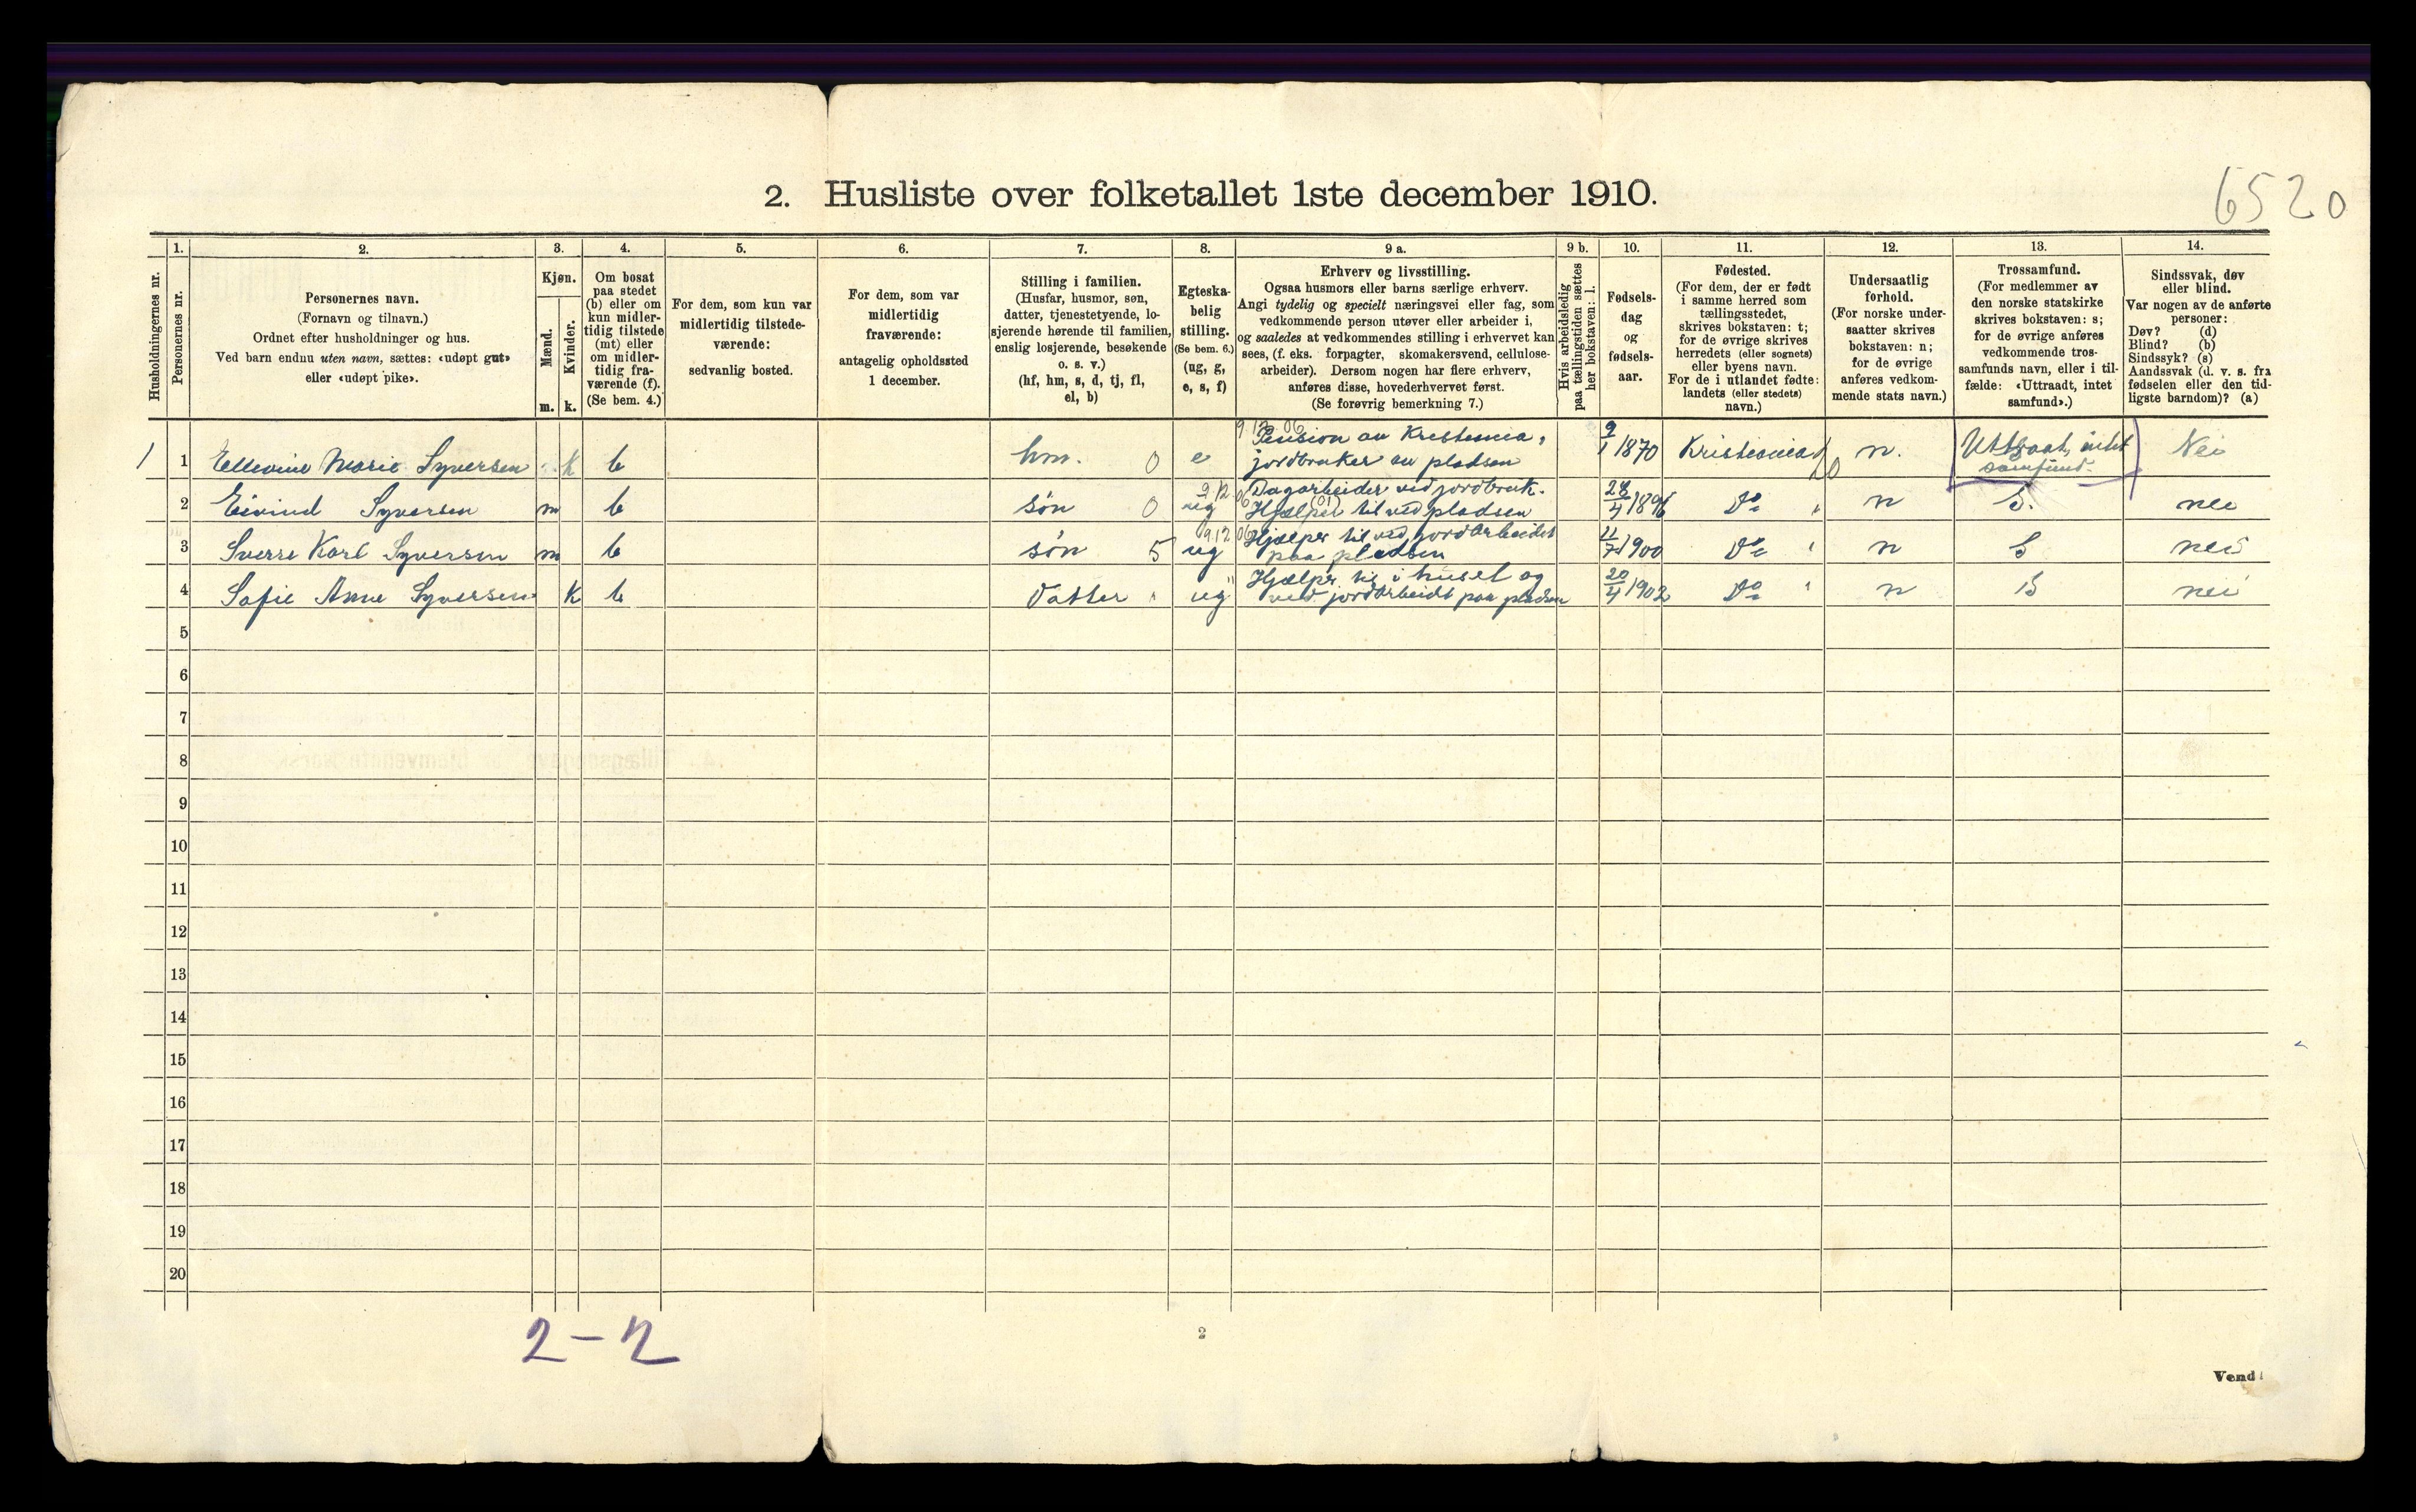 2. Husliste over folketallet 1ste december 1910.
6520
Husholdningernes nr.
1.
Personernes nr.
2.
Personernes navn.
(Fornavn og tilnavn.)
Ordnet efter husholdninger og hus.
Ved barn endnu uten navn, sættes: «udøpt gut»
eller «udøpt pike».
3.
Kjøn.
Mænd.
Kvinder.
m. k.
4.
Om bosat
paa stedet
(b) eller om
kun midler-
tidig tilstede
(mt) eller
om midler-
tidig fra-
værende (f).
(Se bem. 4.)
5.
For dem, som kun var
midlertidig tilstede-
værende:
sedvanlig bosted.
6.
For dem, som var
midlertidig
fraværende:
antagelig opholdssted
1 december.
7.
Stilling i familien.
(Husfar, husmor, søn,
datter, tjenestetyende, lo-
sjerende hørende til familien,
enslig losjerende, besøkende
o. s. v.)
(hf, hm, s, d, tj, fl,
el, b)
8.
Egteska-
belig
stilling.
(Se bem. 6.)
(ug, g,
e, s, f)
9 a.
Erhverv og livsstilling.
Ogsaa husmors eller barns særlige erhverv.
Angi tydelig og specielt næringsvei eller fag, som
vedkommende person utøver eller arbeider i,
og saaledes at vedkommendes stilling i erhvervet kan
sees, (f. eks. forpagter, skomakersvend, cellulose-
arbeider). Dersom nogen har flere erhverv,
anføres disse, hovederhvervet først.
(Se forøvrig bemerkning 7.)
9 b.
Hvis arbeidsledig
paa tællingstiden sættes
her bokstaven: l.
10.
Fødsels-
dag
og
fødsels-
aar.
11.
Fødested.
(For dem, der er født
i samme herred som
tællingsstedet,
skrives bokstaven: t;
for de øvrige skrives
herredets (eller sognets)
eller byens navn.
For de i utlandet fødte:
landets (eller stedets)
navn.)
12.
Undersaatlig
forhold.
(For norske under-
saatter skrives
bokstaven: n;
for de øvrige
anføres vedkom-
mende stats navn.)
13.
Trossamfund.
(For medlemmer av
den norske statskirke
skrives bokstaven: s;
for de øvrige anføres
vedkommende tros-
samfunds navn, eller i til-
fælde: «Uttraadt, intet
samfund».)
14.
Sindssvak, døv
eller blind.
Var nogen av de anførte
personer:
Døv? (d)
Blind? (b)
Sindssyk? (s)
Aandssvak (d. v. s. fra
fødselen eller den tid-
ligste barndom)? (a)
1 1 Ellevine Marie Syversen k b hm. 0 e 9 12 06 Pension av Kristiania, jordbruker av pladsen 9/1 1870 Kristiania n. Uttraat, intet samfund. Nei
2 Eivind Syversen m b søn 0 ug 9 12 06 Dagarbeider ved jordbruk. Hjælper (01) til ved pladsen 28/4 1896 Do n S. nei
3 Sverre Karl Syversen m b søn 5 ug 9 12 06 Hjælper til ved jordarbeidet paa pladsen 11/7 1900 Do n S nei
4 Sofie Anne Syversen k b Datter " ug " Hjælper til i huset og ved jordarbeidet paa pladsen 20/4 1902 Do n S nei
5
6
7
8
9
10
11
12
13
14
15
16
17
18
19
20
2-2
2
Vend!